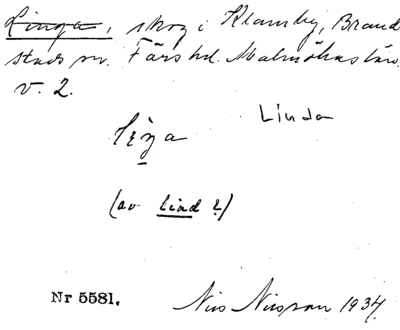 Linga, skog i Klamby, Brand
stads sn. Färs hd. Malmöhus län.
v. 2.
Linda
liŋa
(av lind?)
Nr 5581.
Nils Nilsson 1934